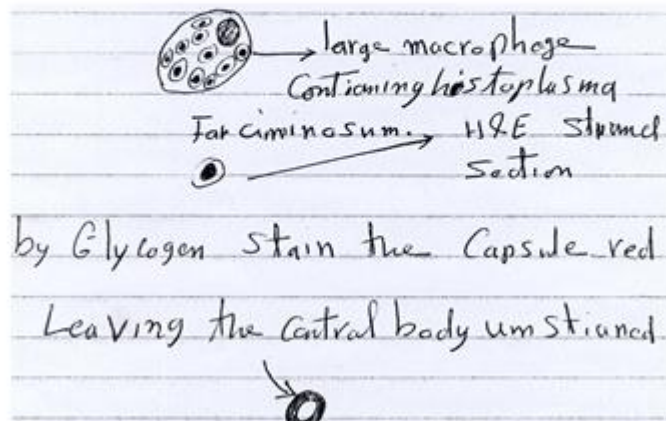 large macrophage
Contianing histoplasma
Farciminosum. H&E Stained
Section
by Glycogen Stain the Capsule red
Leaving the Central body unstianed